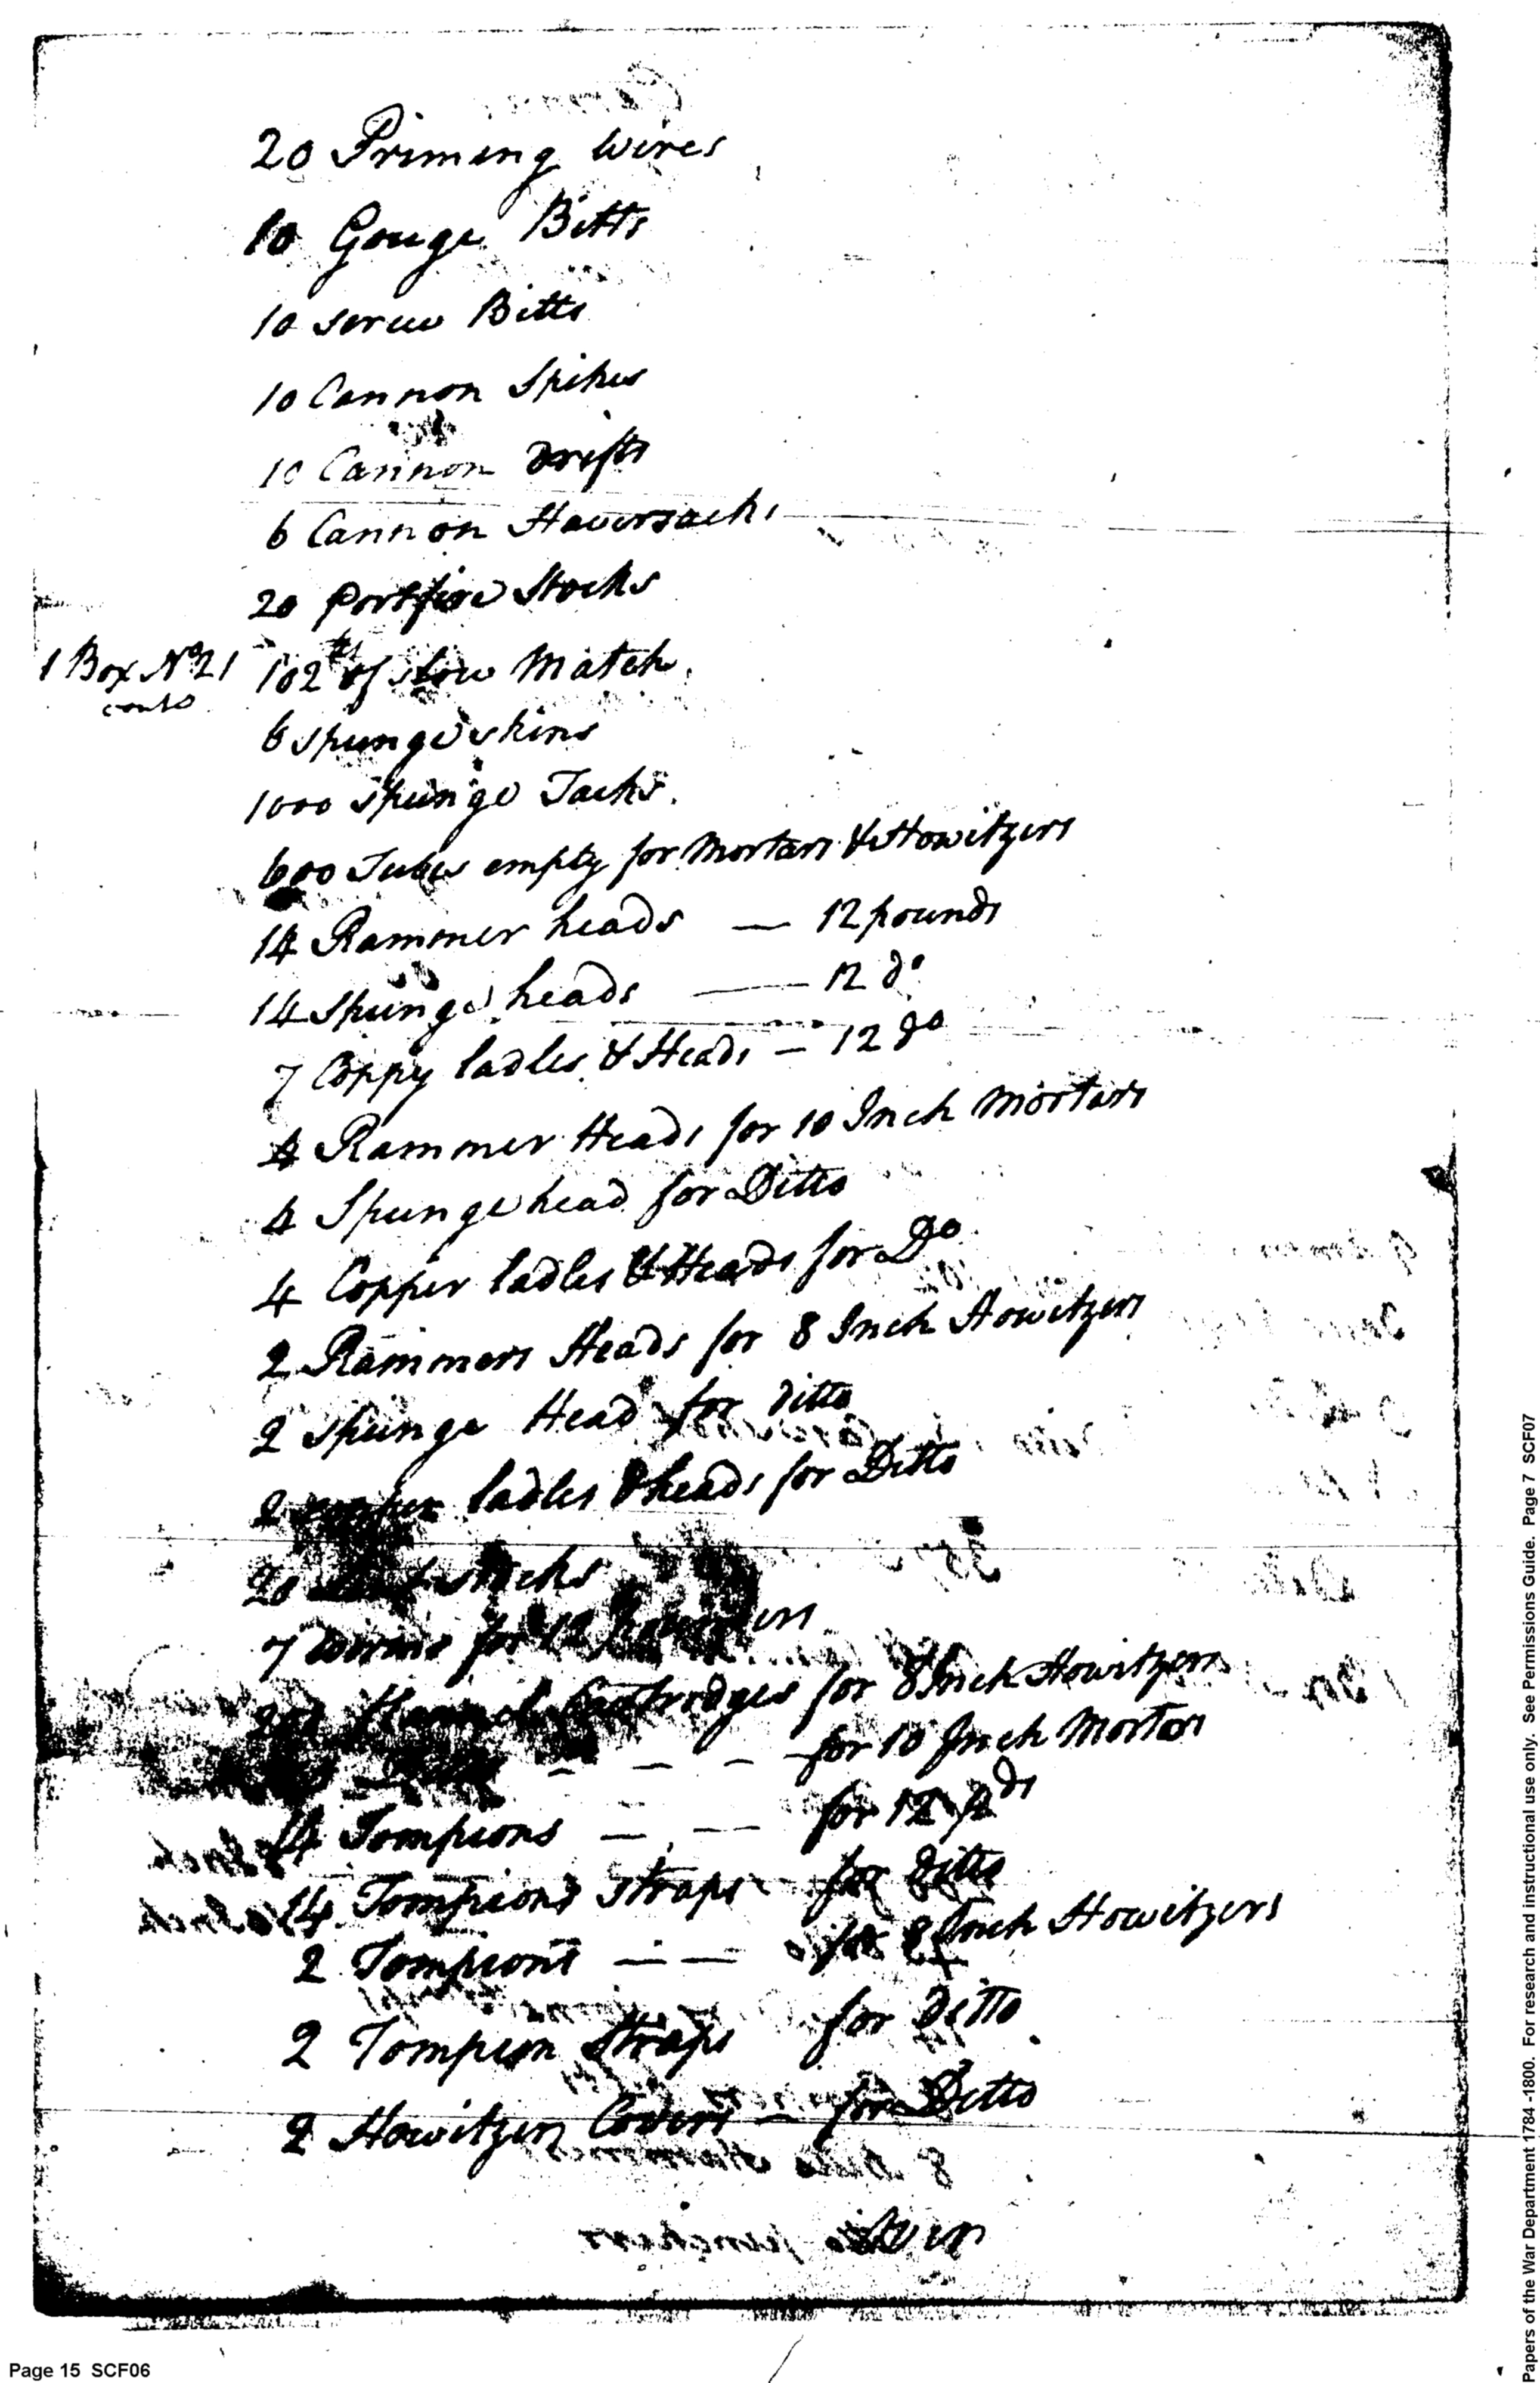 20 Priming Wires
10 Gouge Bitts
10 screw Bitts
10 Cannon Spikes
10 Cannon drifts
6 Cannon Haversacks
20 Portfire Stocks
1 Box No 21 conto
102 lb of slow Match
6 spunge skins
1000 spunge Tacks.
600 Tubes empty for Mortars & Howitzers
14 Rammer heads — 12 pounds
14 Spunge heads — 12 do
7 Coppy ladles & Heads — 12 do
4 Rammer Heads for 10 Inch Mortars
4 Spunge head for Ditto
4 Copper ladles & Heads for Do
2 Rammers Heads for 8 Inch Howitzers
2 Spunge Head for ditto
2 copper ladles & heads for Ditto
20 stocks
7 worms for 12
Flannel Cartrodges for 8 Inch Howitzers
— — — for 10 Inch Mortars
14 Tompions — — for 12 pds
14 Tompions straps for ditto
2 Tompions — — for 8 Inch Howitzers
2 Tompion Straps for ditto
2 Howitzers Covers — for Ditto
Page 15 SCF06
Papers of the War Department 1784 -1800. For research and instructional use only. See Permissions Guide. Page 7 SCF07